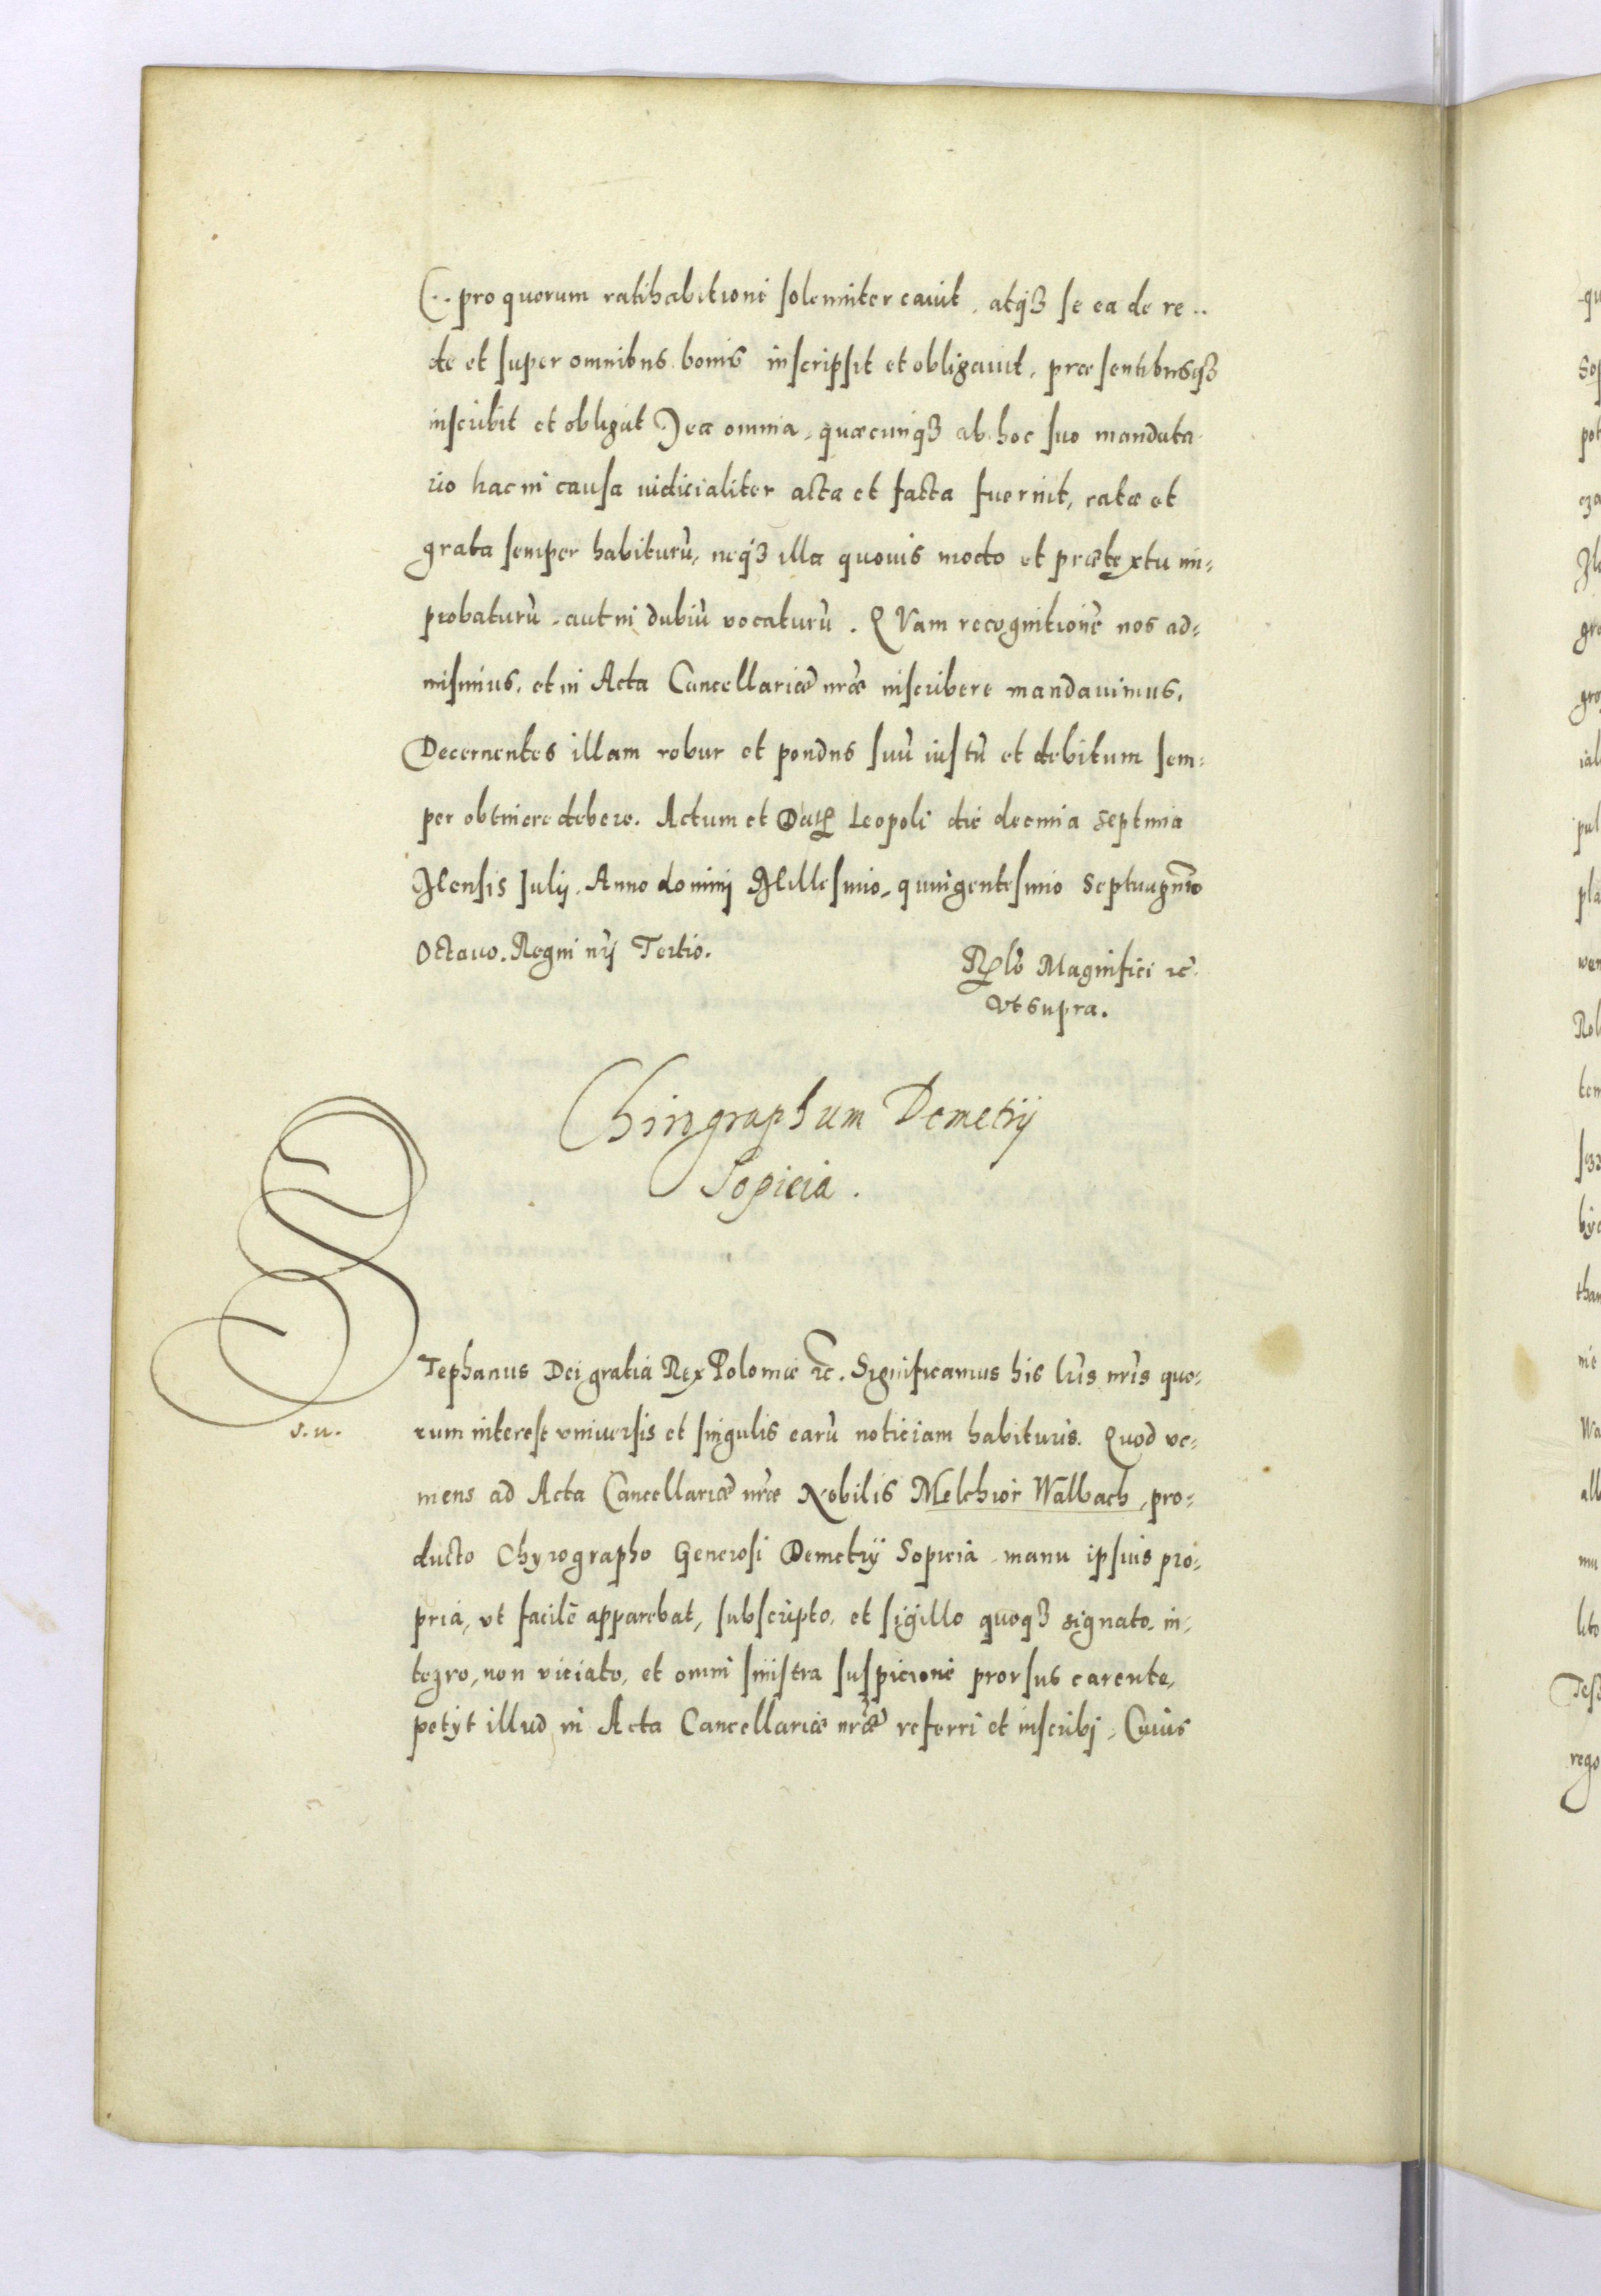 (.. pro quorum ratihabitione solemniter cauit, atq3 se ea de re ..
de et super omnibus bonis inscripsit et obligauit, præsentibusq3
inscribit et obligat) ea omnia, quæcunq3 ab hoc suo mandata
rio hac in causa iudicialiter acta et facta fuerint, rata et
grata semper habiturũ, neq3 illa quouis modo et prætextu im=
probaturũ, aut in dubiũ vocaturũ. QVam recognitionẽ nos ad=
misimus, et in Acta Cancellariæ nr̃æ inscribere mandauimus,
Decernentes illam robur et pondus suũ iustũ et debitum sem=
per obtinere debere. Actum et Dat Leopoli die decima septima
Mensis Julij. Anno dominj Millesimo, quingentesimo septuagmo
Octauo. Regni nrj Tertio.
Rlo Magnifici etc.
vt supra.
Chirographum Demetrij
Sopicia.
STephanus Dei gratia Rex Poloniæ etc. Significamus his lr̃is nr̃is quo=
s. n.
rum interest vniuersis et singulis earũ noticiam habituris. Quod ve=
niens ad Acta Cancellariæ nr̃æ Nobilis Melchior Walbach, pro=
ducto Chyrographo Generosi Demetrij Sopicia, manu ipsius pro=
pria, vt facilè apparebat, subscripto, et sigillo quoq3 signato, in=
tegro, non viciato, et omni sinistra suspicione prorsus carente,
petijt illud in Acta Cancellariæ nr̃æ referri et inscribj. Cuius